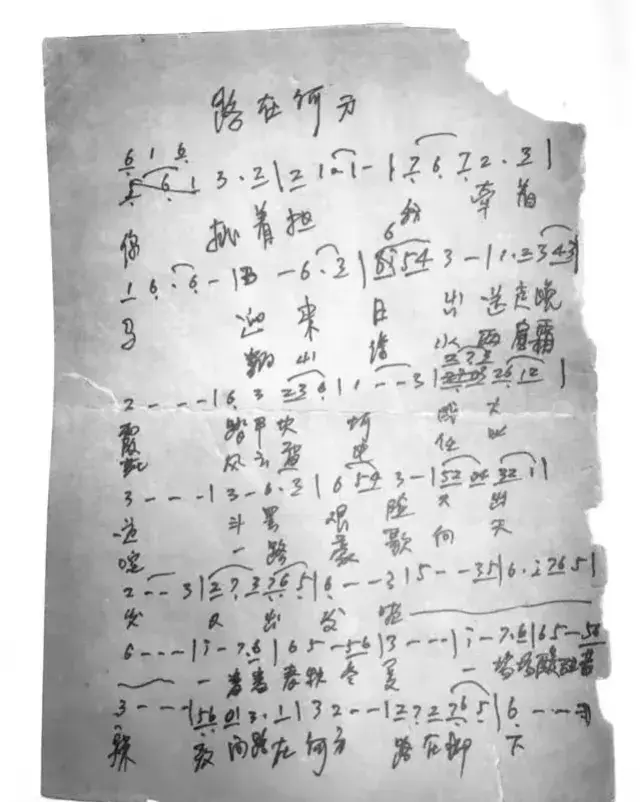 路在何方
6 1 6
5 6 1 3 · 2 | 2 1 · 1 - | 7 6 7 2 · 3 |
你 挑着担 我 牵着
1 6 · 6 - | 3 - 6 · 3 | 6 5 5 4 3 - | 1 · 2 3 4 3 |
马 迎来日出 送走晚
翻山涉水 两肩霜
2 - - - | 6 3 2 3 6 | 1 · - - 3 |
霞 踏平坎坷 成大
风云 任
3 - - - | 3 - 6 · 3 | 6 5 4 3 - | 5 2 0 4 3 2 1 |
道 斗罢艰险 又出
啦 一路豪歌 向天
2 - - 3 | 2 7 · 3 7 6 5 | 6 - - - 3 | 5 - - - 3 5 | 6 · i 7 6 5 |
发 又出发 啦
6 - - - | i - 7 · 6 | 6 5 - 5 6 | 3 - - - | i - 7 · 6 | 6 5 - 5 6
一番番春秋冬夏 一场场酸甜苦
3 - - - | 5 6 0 1 3 · 1 | 3 2 - - | 2 7 2 7 6 5 | 6 - - -
辣 敢问路在何方 路在脚下